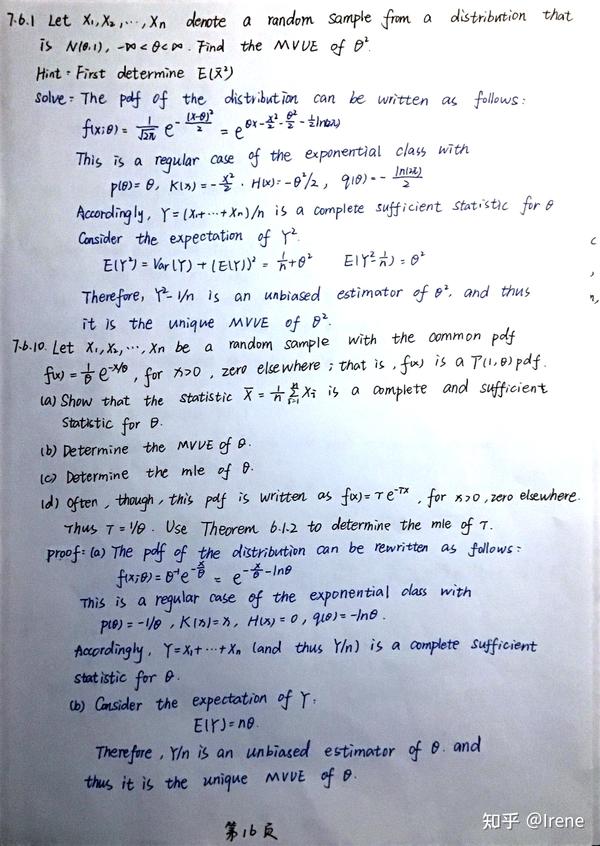 7.6.1 Let X₁, X₂, ⋯, Xn denote a random sample from a distribution that
is N(θ,1), -∞<θ<∞. Find the MVUE of θ².
Hint: First determine E(X̄²)
solve: The pdf of the distribution can be written as follows:
f(x;θ) = 1/√2π e^{-(x-θ)²/2} = e^{θx - x²/2 - θ²/2 - ½ln(2π)}
This is a regular case of the exponential class with
p(θ)=θ, K(x)=-x²/2. H(x)=-θ²/2, q(θ)=-ln(2π)/2
Accordingly, Y=(X₁+⋯+Xn)/n is a complete sufficient statistic for θ
Consider the expectation of Y².
E(Y²) = Var(Y) + (E(Y))² = 1/n + θ² E(Y²-1/n) = θ²
Therefore, Y²-1/n is an unbiased estimator of θ², and thus
it is the unique MVUE of θ².
7.6.10. Let X₁, X₂, ⋯, Xn be a random sample with the common pdf
f(x) = 1/θ e^{-x/θ}, for x>0, zero elsewhere; that is, f(x) is a Γ(1,θ) pdf.
(a) Show that the statistic X̄ = 1/n Σⁿᵢ₌₁ Xᵢ is a complete and sufficient
statistic for θ.
(b) Determine the MVUE of θ.
(c) Determine the mle of θ.
(d) Often, though, this pdf is written as f(x)=τe^{-τx}, for x>0, zero elsewhere.
Thus τ=1/θ. Use Theorem 6.1.2 to determine the mle of τ.
proof: (a) The pdf of the distribution can be rewritten as follows:
f(x;θ) = θ⁻¹e^{-x/θ} = e^{-x/θ - lnθ}
This is a regular case of the exponential class with
p(θ)=-1/θ, K(x)=x, H(x)=0, q(θ)=-lnθ.
Accordingly, Y=X₁+⋯+Xn (and thus Y/n) is a complete sufficient
statistic for θ.
(b) Consider the expectation of Y.
E(Y)=nθ.
Therefore, Y/n is an unbiased estimator of θ. and
thus it is the unique MVUE of θ.
第16页
知乎 @Irene